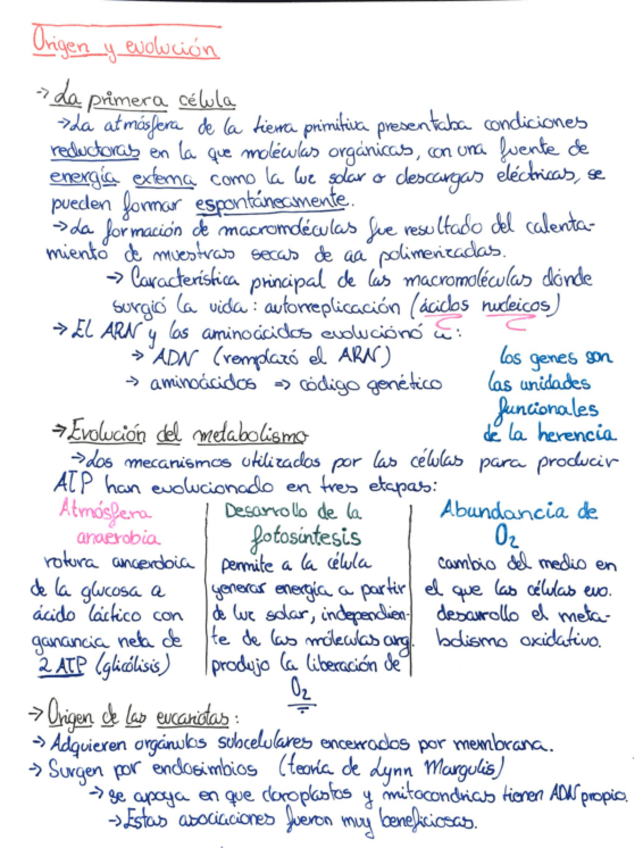 Origen y evolución
→ La primera célula
→ La atmósfera de la tierra primitiva presentaba condiciones
reductoras en la que moléculas orgánicas, con una fuente de
energía externa como la luz solar o descargas eléctricas, se
pueden formar espontáneamente.
→ La formación de macromoléculas fue resultado del calenta-
miento de muestras secas de aa polimerizadas.
→ Característica principal de las macromoléculas dónde
surgió la vida: autorreplicación (ácidos nucleicos)
→ El ARN y los aminoácidos evolucionó a:
→ ADN (remplazó el ARN)
→ aminoácidos => código genético
los genes son
las unidades
funcionales
de la herencia
→ Evolución del metabolismo
→ Los mecanismos utilizados por las células para producir
ATP han evolucionado en tres etapas:
Atmósfera
anaerobia
rotura anaerobia
de la glucosa a
ácido láctico con
ganancia neta de
2 ATP (glicólisis)
Desarrollo de la
fotosíntesis
permite a la célula
generar energía a partir
de luz solar, independien-
te de las moléculas org.
produjo la liberación de
O2
Abundancia de
O2
cambio del medio en
el que las células evo.
desarrollo el meta-
bolismo oxidativo.
→ Origen de las eucariotas:
→ Adquieren orgánulos subcelulares encerrados por membrana.
→ Surgen por endosimbios (teoría de Lynn Margulis)
→ se apoya en que cloroplastos y mitocondrias tienen ADN propio.
→ Estas asociaciones fueron muy beneficiosas.